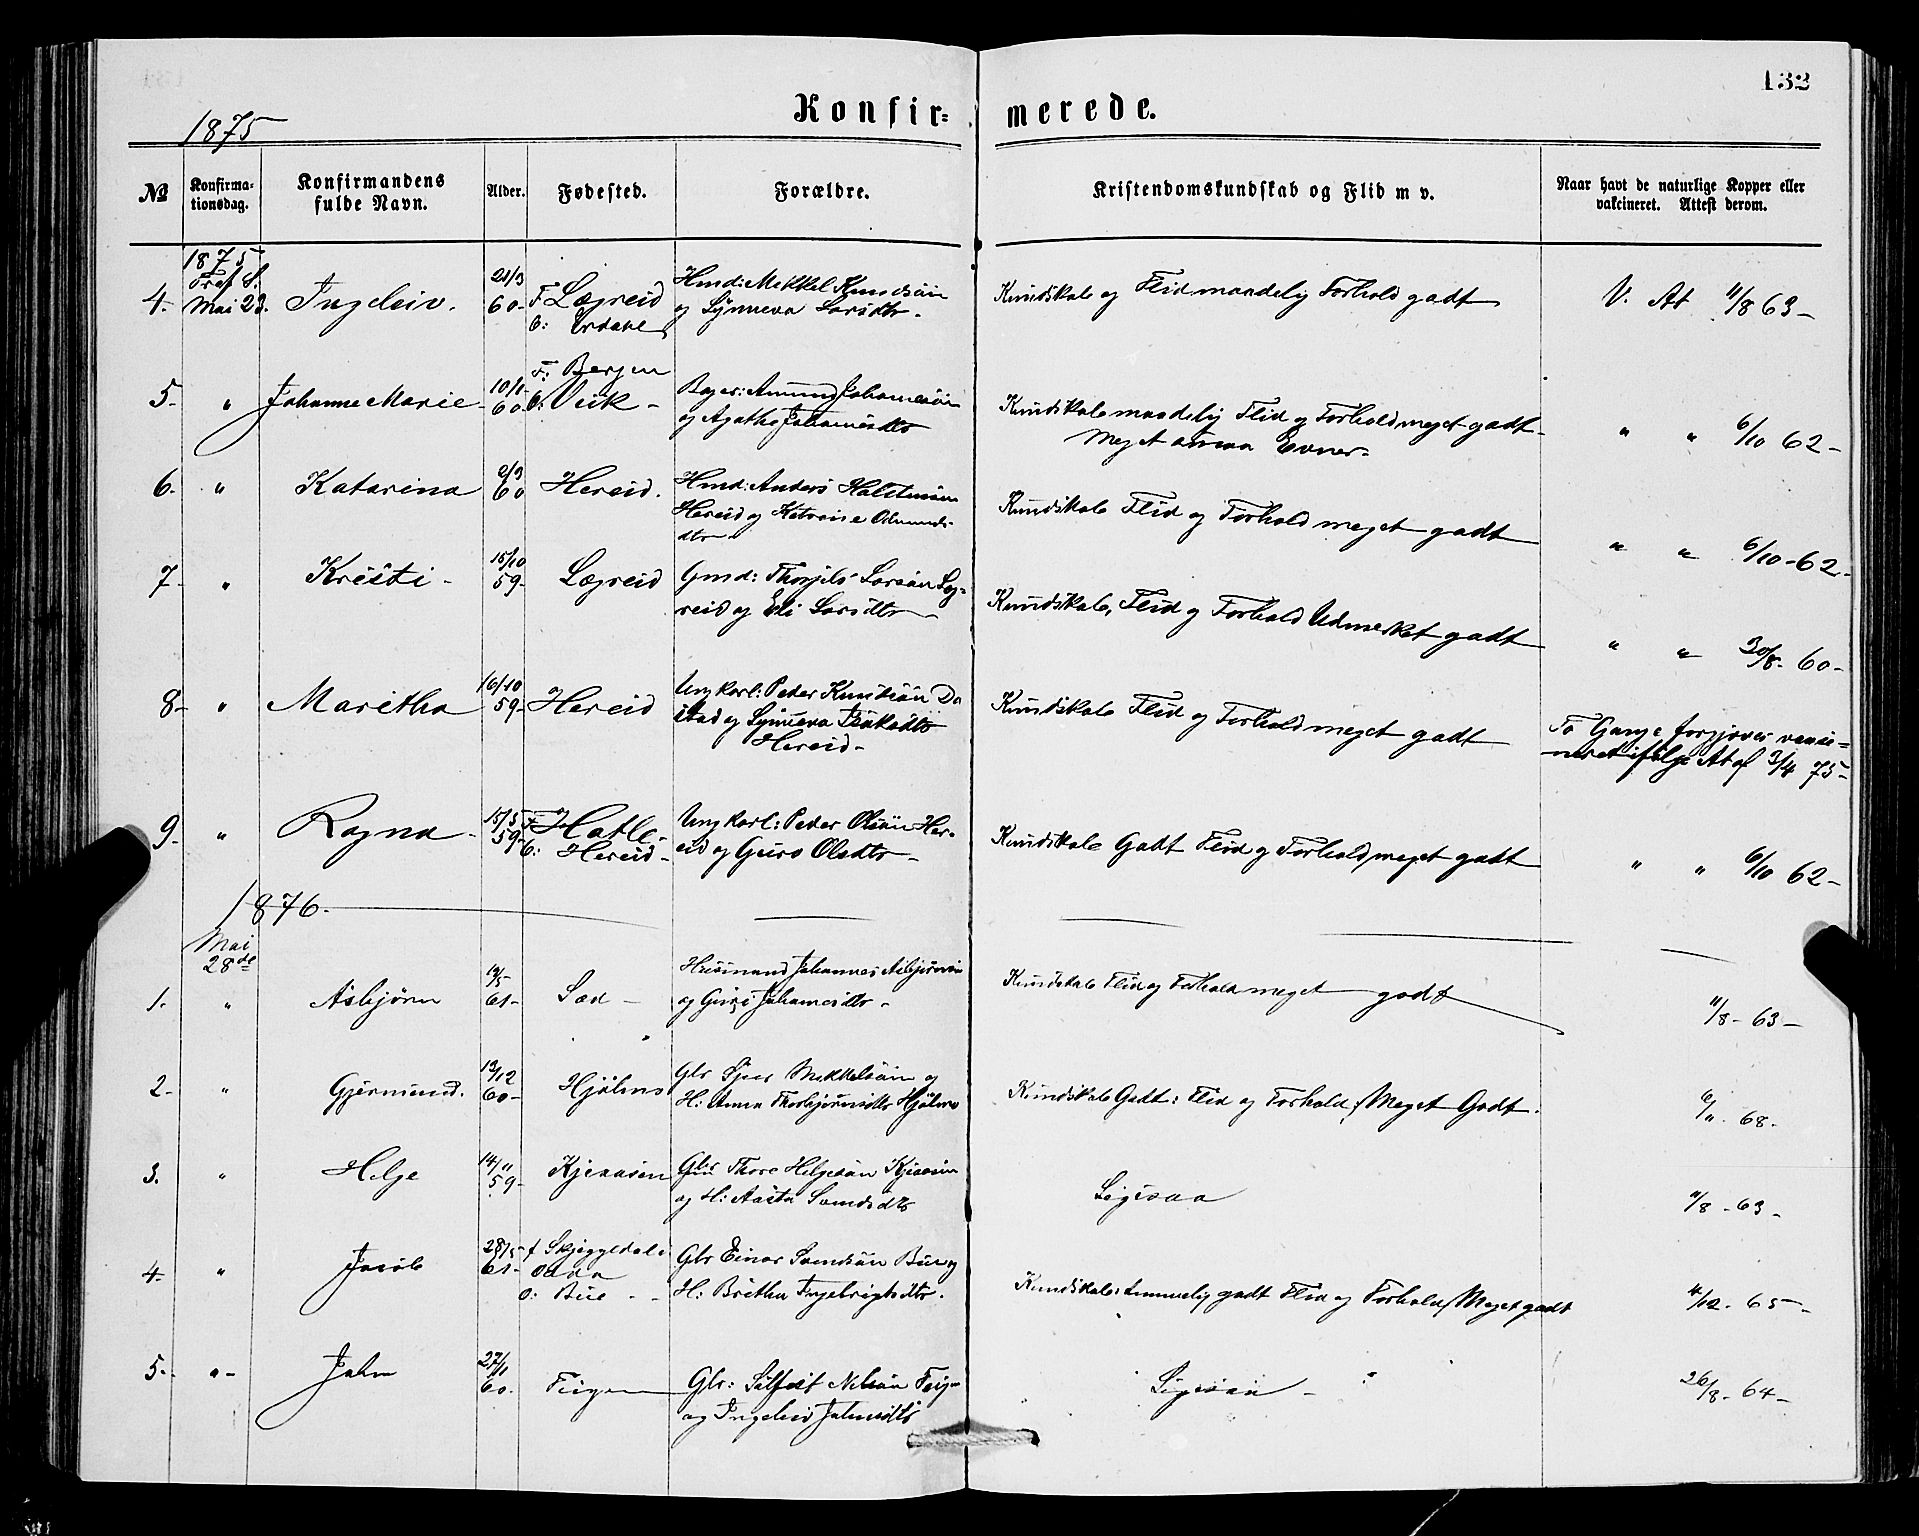 132
Konfir- merede.
1875
№ Konfirma- Konfirmandens Alder. Fødested. Forældre. Kristendomskundskab og Flid m v. Naar havt de naturlige Kopper eller
tionsdag. fulde Navn. vakcineret. Attest derom.
1875
Tref S.
4. Mai 23. Ingeleiv. 21/3 60- F Lægreid Hmd: Mikkel Knudsön Kundskab og Flid maadelig Forhold godt V. At 11/8 63-
o: Erdahl og Synneva Larsdtr.
5- " Johanne Marie 10/1 60. F: Bergen
o: Viik- Bager: Amund Johannesön Kundskab maadelig Flid og Forhold meget godt- " " 6/10 62-
og Agatha Johannesdtr Meget smaa Evner-
6. " Katarina 2/3 60 Hereid. Hmd: Anders Halstensön Kundskab Flid og Forhold meget godt " " 6/10-62-
Hereid og Katarina Odmunds-
dtr
7- " Kristi- 15/10 59- Lægreid Gmd: Thorgils Larsön Læg- Kundskab, Flid og Forhold Udmerket godt " " 30/8- 60-
reid og Eli Larsdtr
8- " Maritha 16/10 59- Hereid Ungkarl: Peder Knudsön Da Kundskab Flid og Forhold meget godt To Gange forgjæves vacci-
stad og Synneva Isaksdtr neret ifølge At af 3/4 75-
Hereid-
9. " Ragna- 15/5 59- F Hatle- Ungkarl: Peder Olsön Her- Kundskab Godt Flid og Forhold meget godt " " 6/10 62-
o: Hereid- eid og Guro Olsdtr-
1876-
Mai
28de
1. " Asbjörn 61- Sæd- Husmand Johannes Asbjörnsön Kundskab Flid og Forhold meget godt 11/8- 63-
og Guri Johannesdtr-
2- " Gjermund. 13/12 60- Hjølmo Gbr Sjur Mikkelsön og Kundskab Godt: Flid og Forhold Meget Godt. 68-
H: Anna Thorbjörnsdtr Hjølmo
3. " Helge 14/11 59- Kjeaasen Gbr Thore Helgesön Kjeaasen Ligesaa 11/8-63-
og H: Aasta Samsdtr
4- " Jacob 28/5- 61- f Skjeggedal i Gbr Einar Samsön Bu og Kundskab: temmelig godt Flid og Forhold Meget godt 4/12- 65-
Odda H: Britha Ingebrigtsdtr.
o: Bu -
5- "- John 27/11 60. Feigen Gbr: Silfest Nilsön Feig- Ligesaa- " 26/8-64-
og Ingeleiv Johnsdtr